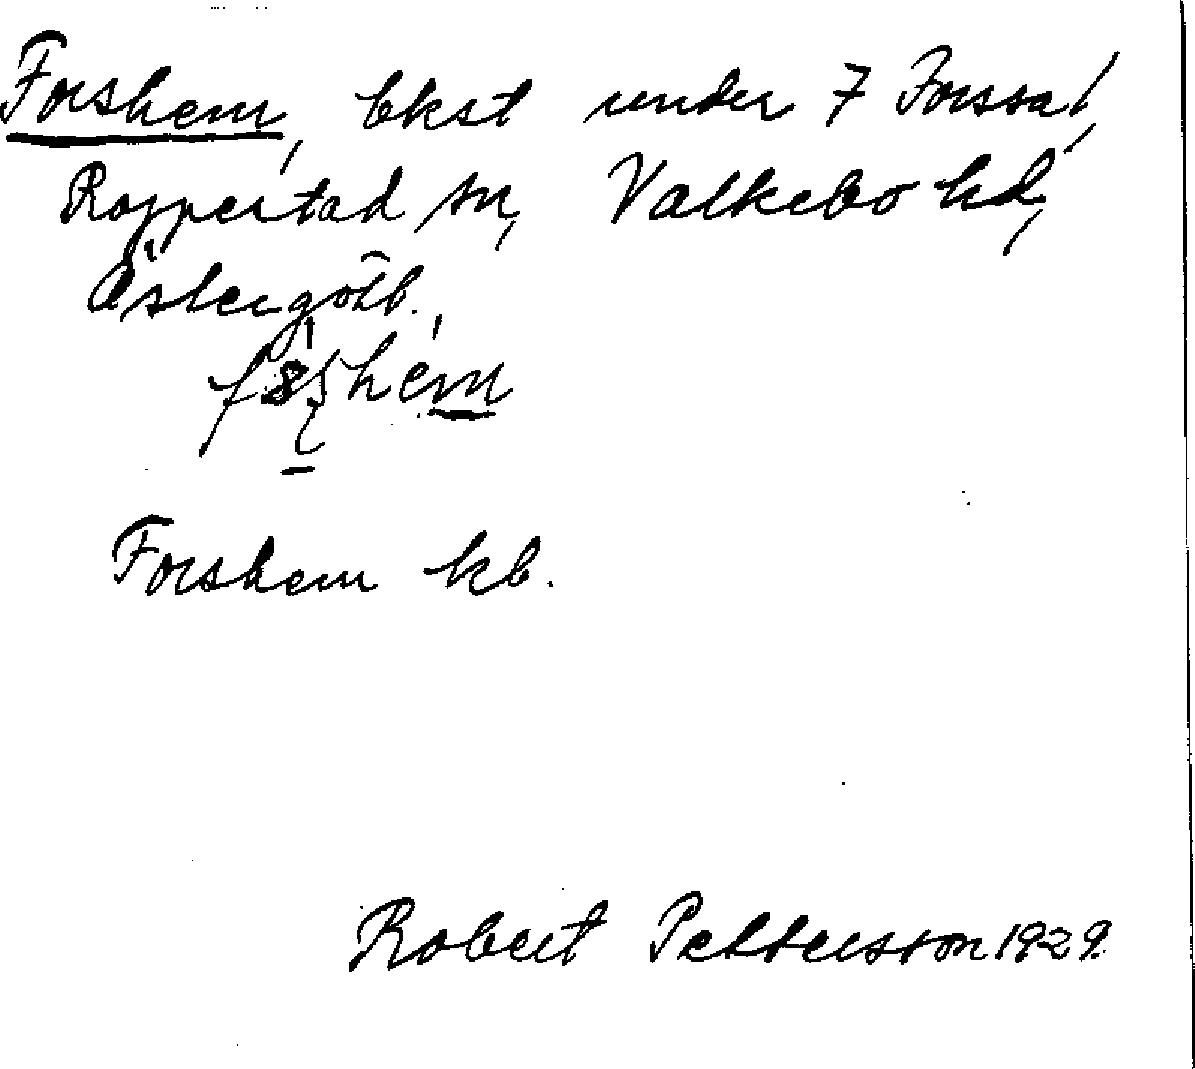 Forshem, bkst under 7 Forssa,
Rappestad sn, Valkebo hd,
Östergötl.
Forshem kb.
Robert Pettersson 1929.